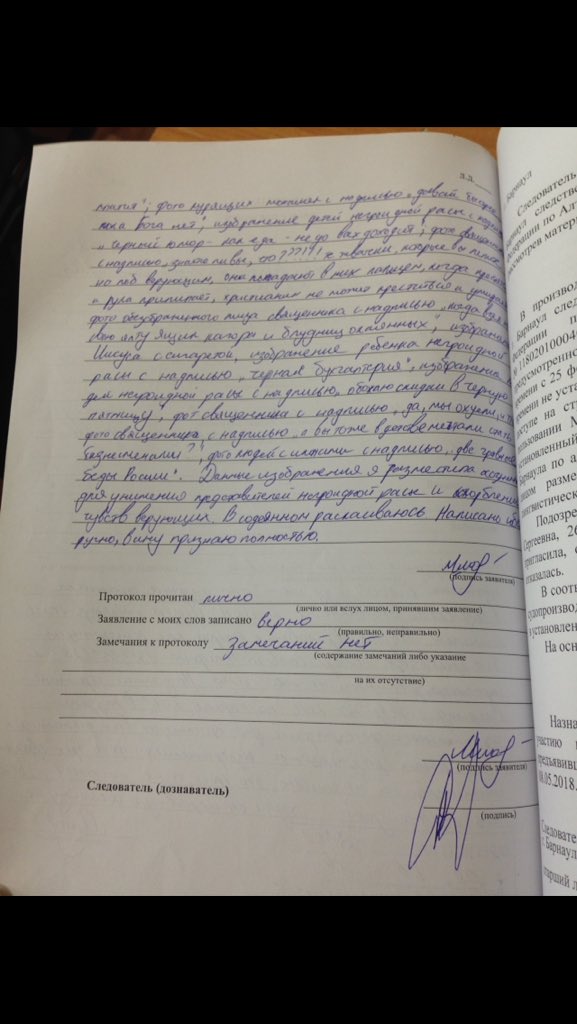 л.д.
книгя"; фото курящих монахинь с надписью "давай быстрее
пока Бога нет"; изображение детей негроидной расы с надписью
"черный юмор - как еда - не до всех доходит"; фото священника
с надписью, знаете ли вы, что ???!!! же жвачки, которые вы
на лоб верующим, она попадают в них пальцем, когда
и рука прилипает, христианин не может креститься и умирает
фото лица священника с надписью "когда взял
ящик кагора и блудниц окаянных", изображение
Иисуса с сигаретой, изображение ребенка негроидной
расы с надписью "черная бухгалтерия", изображение
негроидной расы с надписью, обожаю скидки в черную
пятницу", фото священника с надписью, да, мы охуели",
фото священника с надписью "а вы тоже в детстве мечтали стать
бизнесменами?", фото людей с иконами с надписью, "две главные
беды России". Данные изображения я разместила
для унижения представителей негроидной расы и оскорбления
чувств верующих. В содеянном раскаиваюсь. Написано
ручно, вину признаю полностью.
(подпись заявителя)
Протокол прочитан лично
(лично или вслух лицом, принявшим заявление)
Заявление с моих слов записано верно
(правильно, неправильно)
Замечания к протоколу Замечаний нет
(содержание замечаний либо указание
на их отсутствие)
(подпись заявителя)
Следователь (дознаватель)
(подпись)
Барнаул
Следователь
Барнаул следств
Федерации по Алт
рассмотрев матер
В производ
Барнаул след
Федерации п
№ 11802010004
предусмотренно
времени с 25 ф
времени не уста
доступе на ст
пользовании М
установленный
Барнаула по а
лицом разме
лингвистическ
Подозре
Сергеевна, 26
пригласила, о
отказалась.
В соотв
судопроизвод
в установлен
На осн
Назна
участию в
предъявивш
08.05.2018.
Следовате
г. Барнаул
старший л